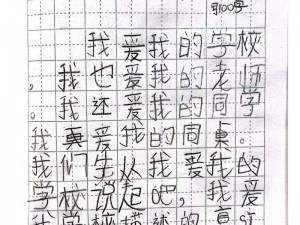 我爱我的学校
,我也爱我的老师
。我还爱我的同学
我真爱我的同桌。
我们从我爱我的
学校说起吧,我爱